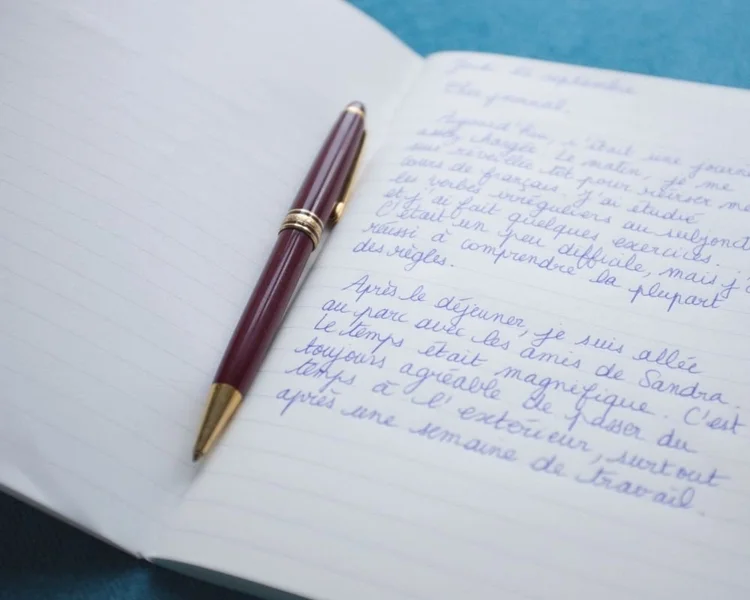 septembre
Cher journal,
Aujourd'hui, c'était une journ
assez chargée. Le matin, je me
suis réveillée tôt pour réviser me
cours de français. J'ai étudié
les verbes irréguliers au subjonct
et j'ai fait quelques exercices.
C'était un peu difficile, mais j'
réussi à comprendre la plupart
des règles.
Après le déjeuner, je suis allée
au parc avec les amis de Sandra.
Le temps était magnifique. C'est
toujours agréable de passer du
temps à l'extérieur, surtout
après une semaine de travail.